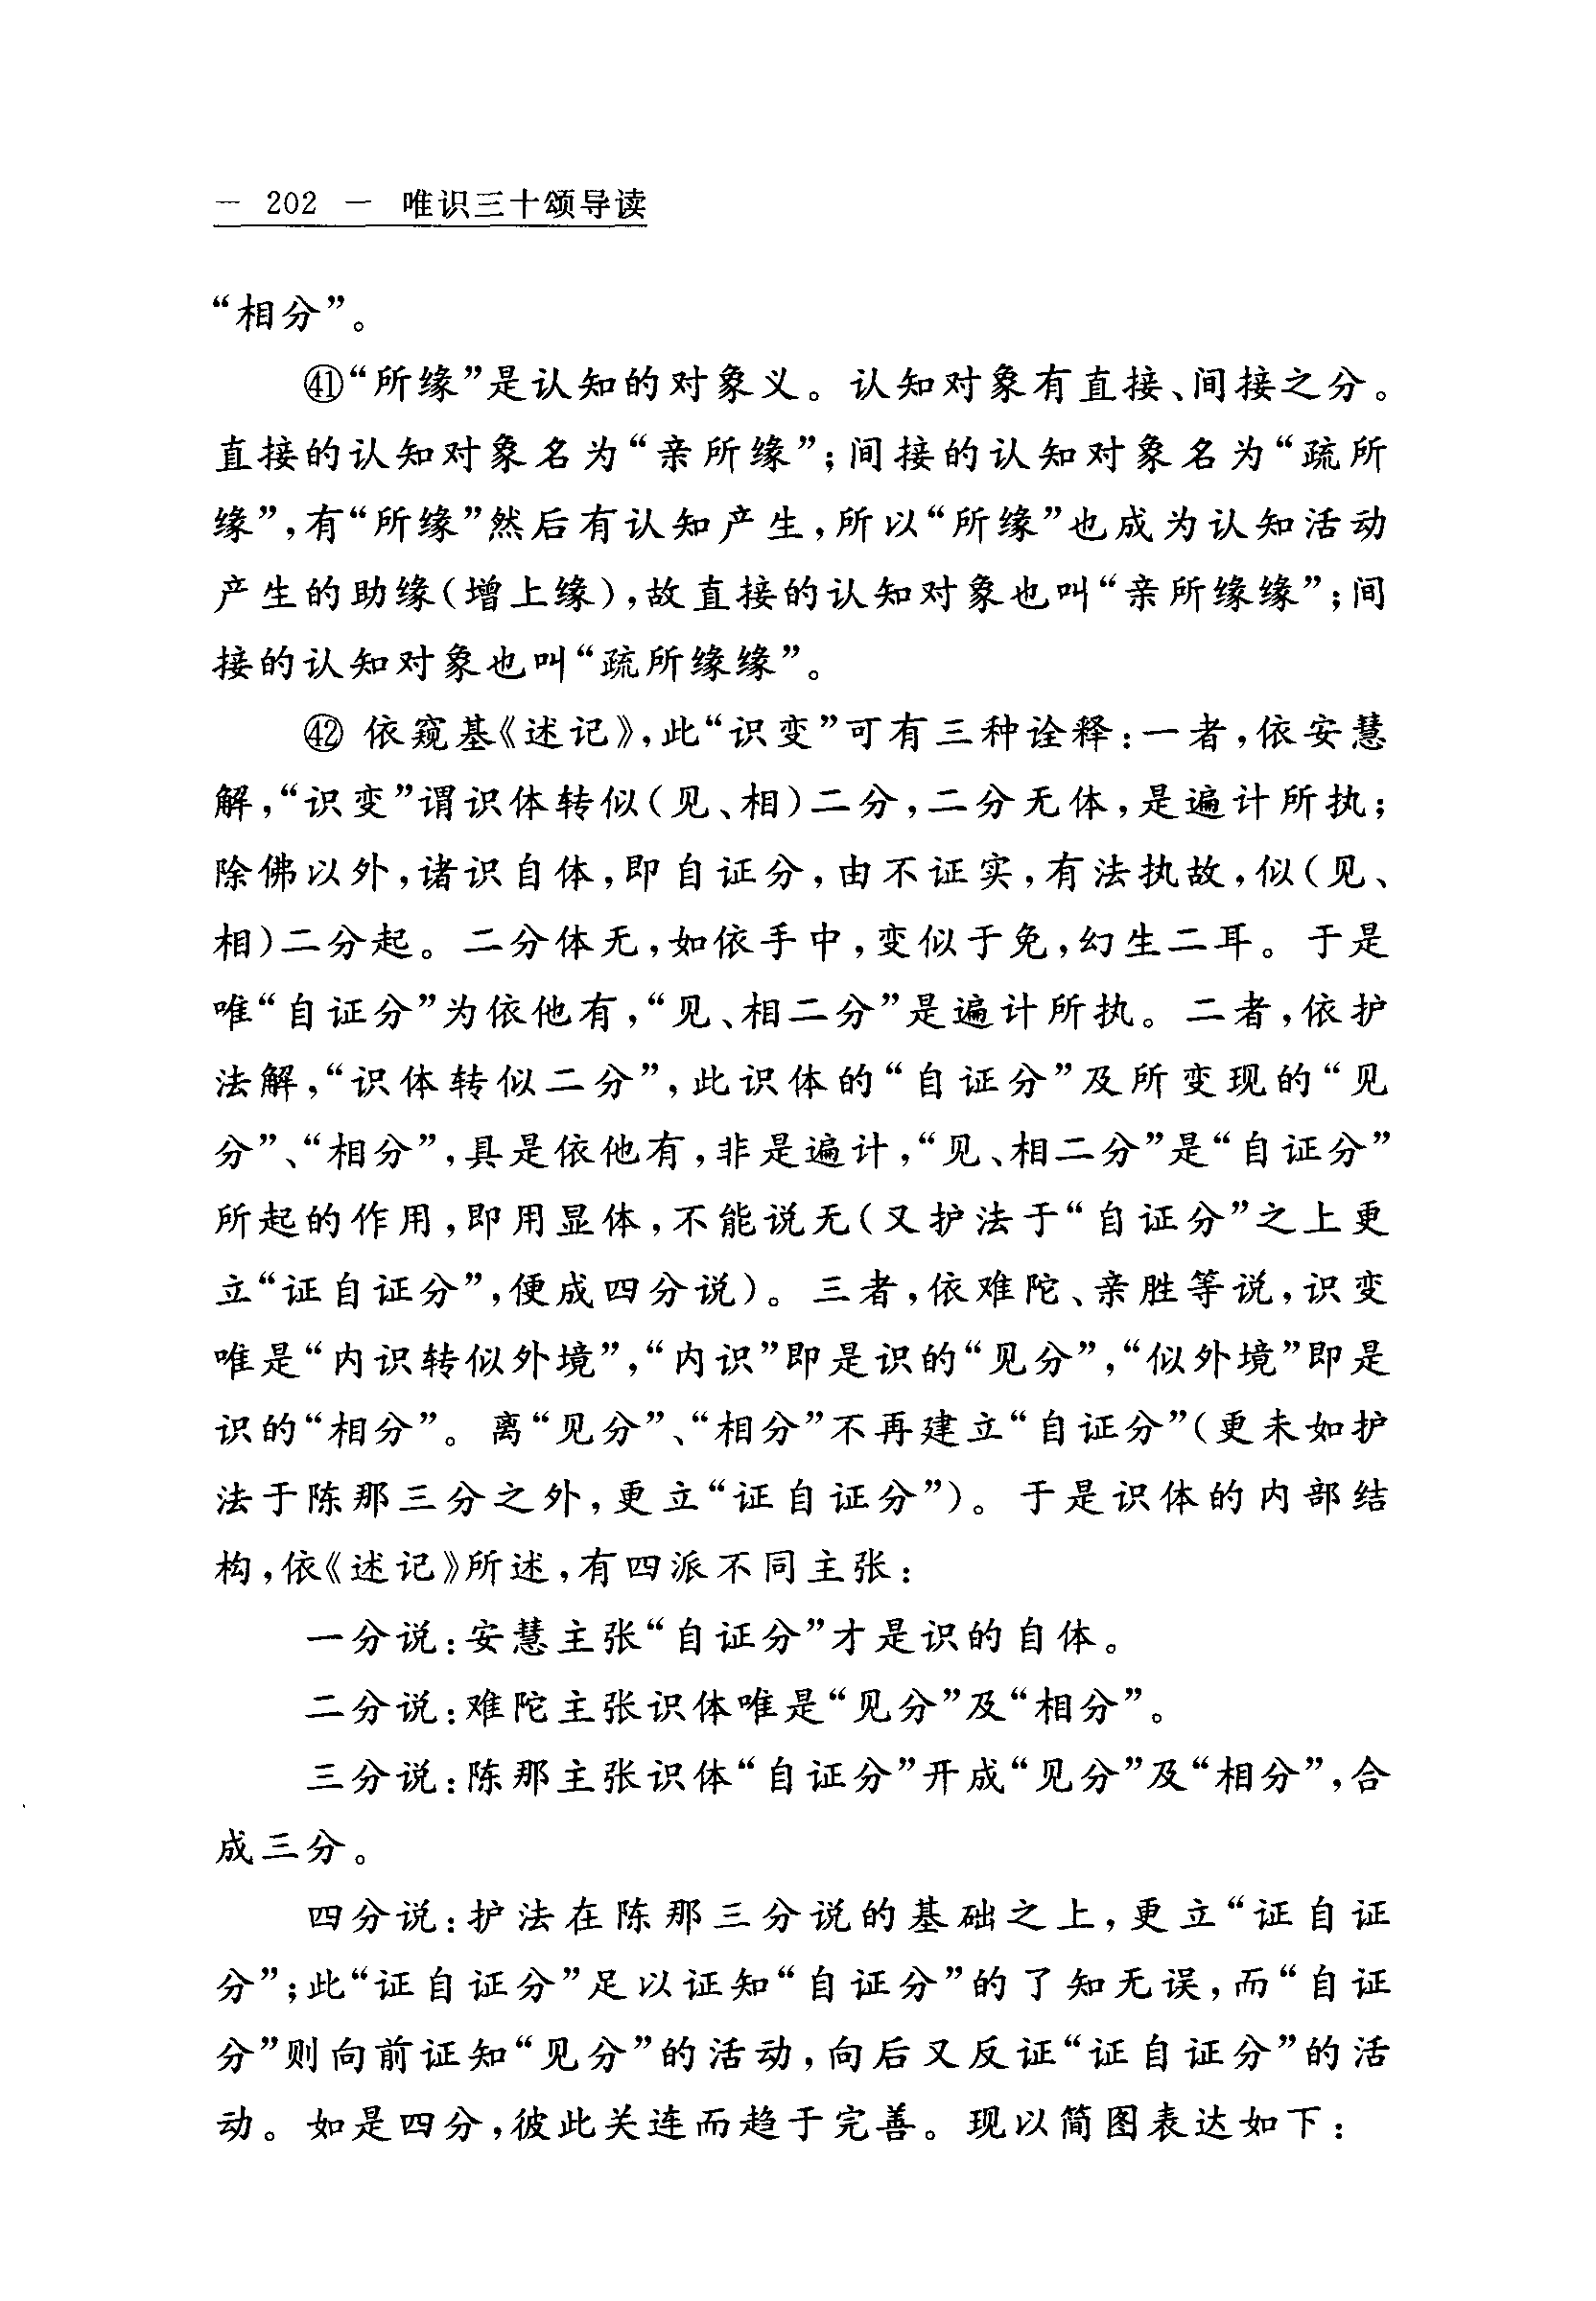 — 202 — 唯识三十颂导读
“相分”。
㊶“所缘”是认知的对象义。认知对象有直接、间接之分。
直接的认知对象名为“亲所缘”;间接的认知对象名为“疏所
缘”,有“所缘”然后有认知产生,所以“所缘”也成为认知活动
产生的助缘(增上缘),故直接的认知对象也叫“亲所缘缘”;间
接的认知对象也叫“疏所缘缘”。
㊷ 依窥基《述记》,此“识变”可有三种诠释:一者,依安慧
解,“识变”谓识体转似(见、相)二分,二分无体,是遍计所执;
除佛以外,诸识自体,即自证分,由不证实,有法执故,似(见、
相)二分起。二分体无,如依手中,变似于免,幻生二耳。于是
唯“自证分”为依他有,“见、相二分”是遍计所执。二者,依护
法解,“识体转似二分”,此识体的“自证分”及所变现的“见
分”、“相分”,具是依他有,非是遍计,“见、相二分”是“自证分”
所起的作用,即用显体,不能说无(又护法于“自证分”之上更
立“证自证分”,便成四分说)。三者,依难陀、亲胜等说,识变
唯是“内识转似外境”,“内识”即是识的“见分”,“似外境”即是
识的“相分”。离“见分”、“相分”不再建立“自证分”(更未如护
法于陈那三分之外,更立“证自证分”)。于是识体的内部结
构,依《述记》所述,有四派不同主张:
一分说:安慧主张“自证分”才是识的自体。
二分说:难陀主张识体唯是“见分”及“相分”。
三分说:陈那主张识体“自证分”开成“见分”及“相分”,合
成三分。
四分说:护法在陈那三分说的基础之上,更立“证自证
分”;此“证自证分”足以证知“自证分”的了知无误,而“自证
分”则向前证知“见分”的活动,向后又反证“证自证分”的活
动。如是四分,彼此关连而趋于完善。现以简图表达如下: